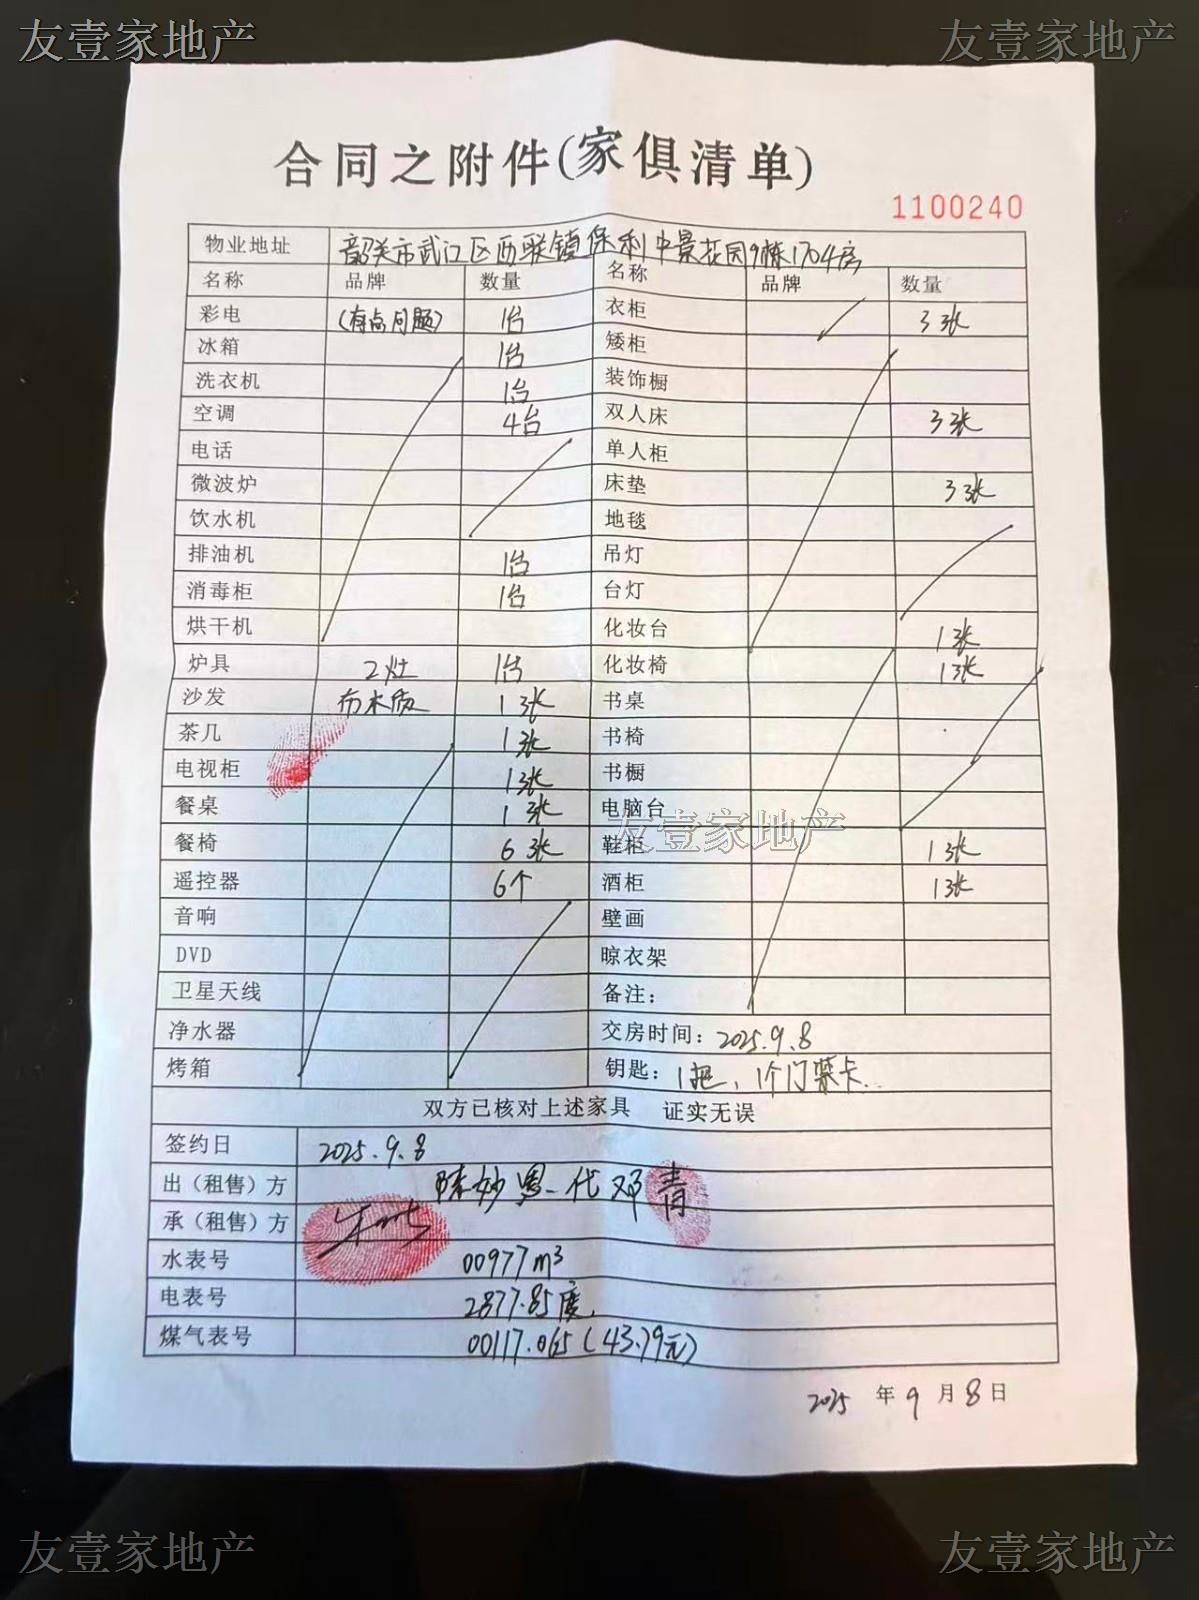 友壹家地产 友壹家地产
合同之附件(家俱清单)
1100240
物业地址 韶关市武江区西联镇保利中景花园9栋1704房
名称 品牌 数量 名称 品牌 数量
彩电 (有点问题) 1台 衣柜 3张
冰箱 1台 矮柜
洗衣机 1台 装饰橱
空调 4台 双人床 3张
电话 单人柜
微波炉 床垫 3张
饮水机 地毯
排油机 1台 吊灯
消毒柜 1台 台灯
烘干机 化妆台 1张
炉具 2灶 1台 化妆椅 1张
沙发 布木质 1张 书桌
茶几 1张 书椅
电视柜 1张 书橱
餐桌 1张 电脑台
友壹家地产
餐椅 6张 鞋柜 1张
遥控器 6个 酒柜 1张
音响 壁画
DVD 晾衣架
卫星天线 备注:
净水器 交房时间: 2025.9.8
烤箱 钥匙: 1把、1个门禁卡..
双方已核对上述家具 证实无误
签约日 2025.9.8
出(租售)方 陈妙恩代邓青
承(租售)方
水表号 00977m³
电表号 2877.85度
煤气表号 00117.065(43.79元)
2025年9月8日
友壹家地产 友壹家地产